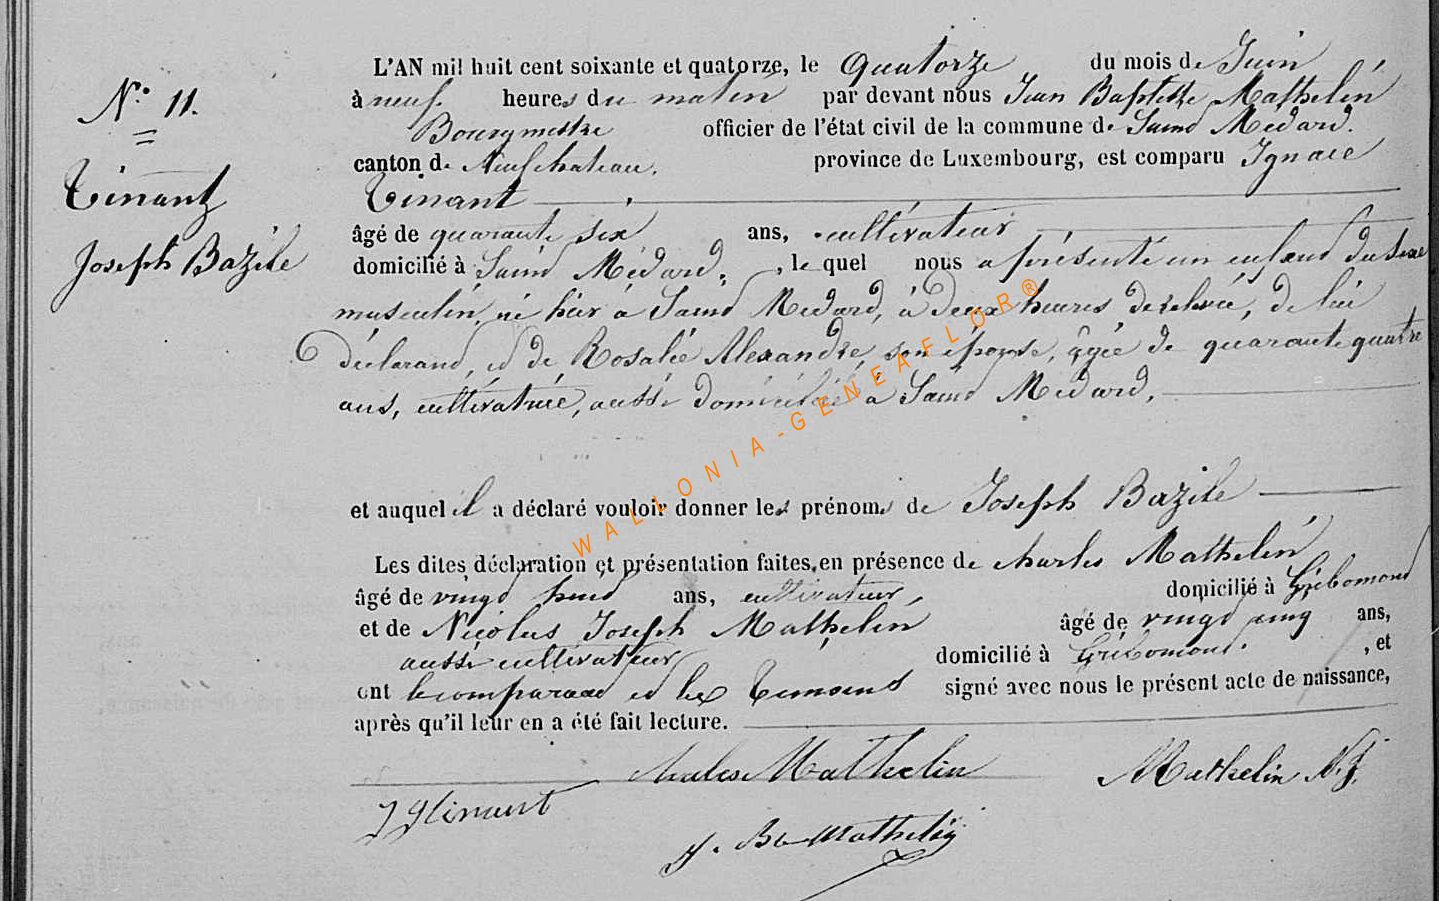 N.° 11.
Tinant
Joseph Bazile
L'AN mil huit cent soixante et quatorze, le quatorze du mois de Juin
à neuf heures du matin par devant nous Jean Baptiste Mathelin
Bourgmestre officier de l'état civil de la commune de Saint Médard.
canton de Neufchateau. province de Luxembourg, est comparu Ignace
Tinant
âgé de quarante six ans, cultivateur
domicilié à Saint Médard, le quel nous a présenté un enfant du sexe
masculin, né hier à Saint Médard, à deux heures de relevée, de lui
déclarant, et de Rosalie Alexandre, son épouse, âgée de quarante quatre
ans, cultivatrice, aussi domiciliée à Saint Médard,
et auquel il a déclaré vouloir donner les prénoms de Joseph Bazile
Les dites déclaration et présentation faites en présence de Charles Mathelin
âgé de vingt huit ans, cultivateur, domicilié à Gribomont
et de Nicolas Joseph Mathelin âgé de vingt cinq ans,
aussi cultivateur domicilié à Gribomont. , et
ont le comparant et les témoins signé avec nous le présent acte de naissance,
après qu'il leur en a été fait lecture.
Charles Mathelin
Mathelin N. J.
J Tinant
J. Bte Mathelin
WALLONIA-GENEAFLOR®